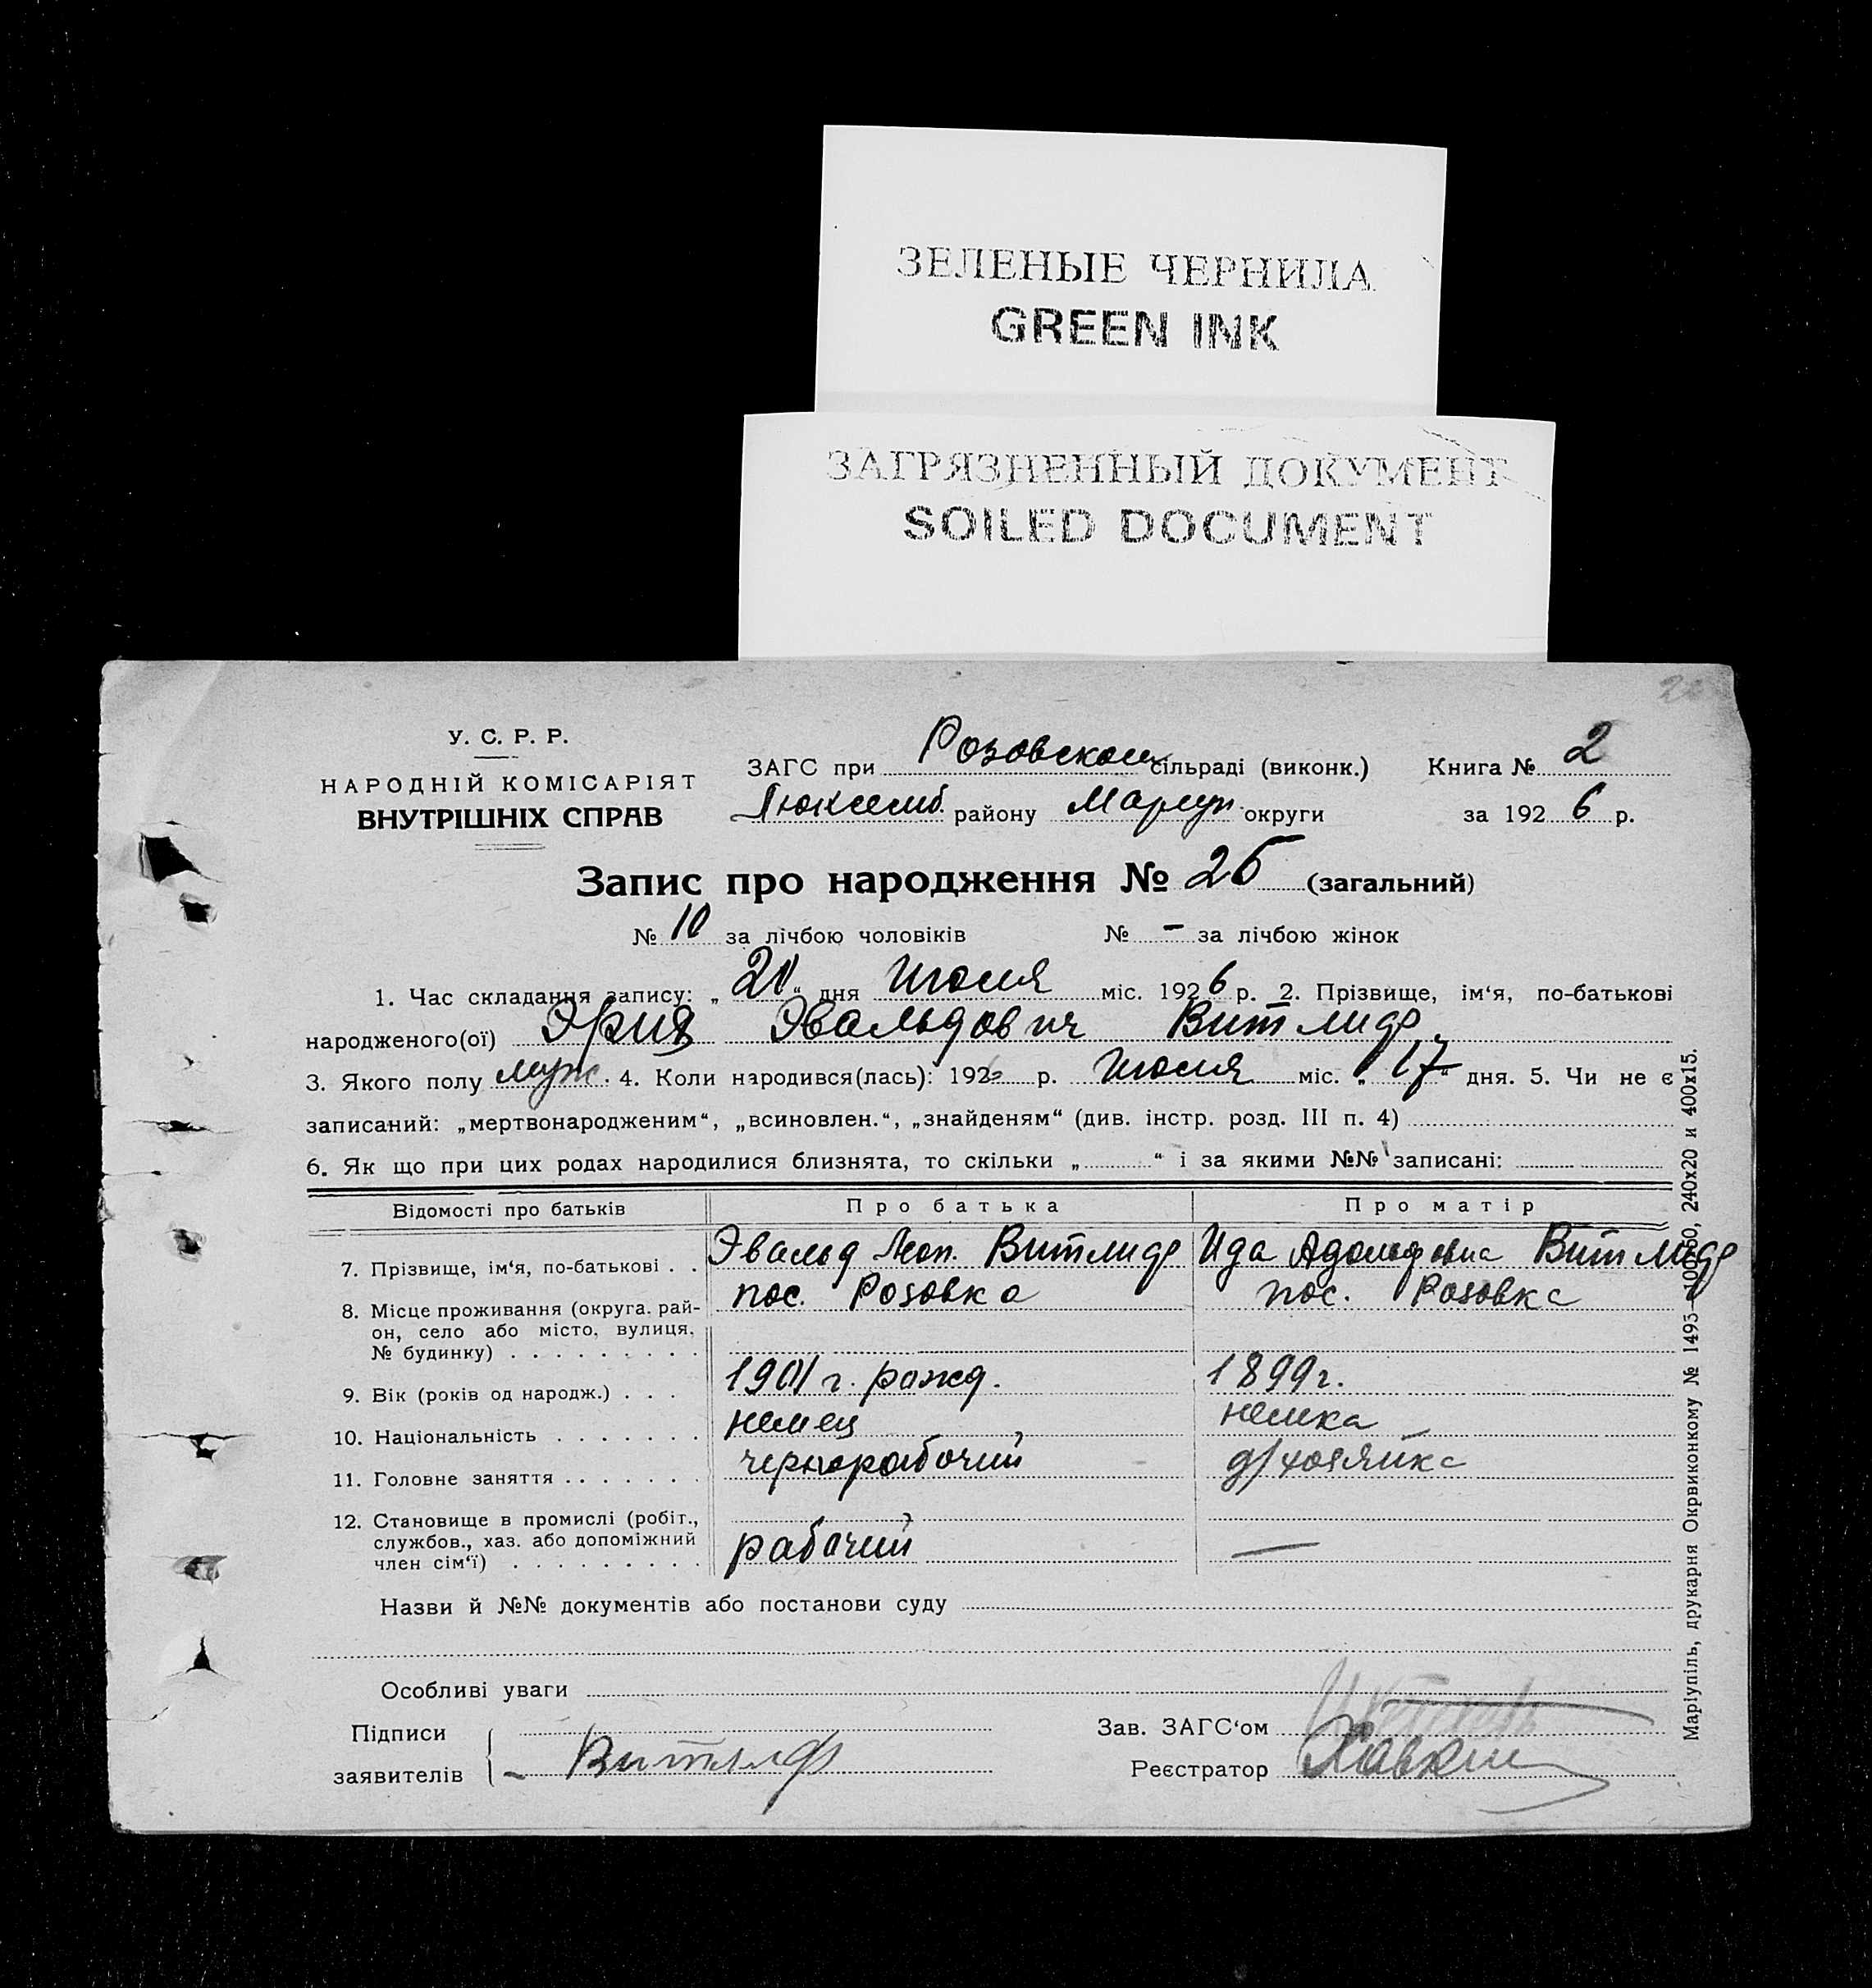 ЗЕЛЕНЫЕ ЧЕРНИЛА
GREEN INK
ЗАГРЯЗНЕННЫЙ ДОКУМЕНТ
SOILED DOCUMENT
У. С. Р. Р.
НАРОДНІЙ КОМІСАРІЯТ
ВНУТРІШНІХ СПРАВ
ЗАГС при Розовском сільраді (виконк.) Книга № 2
Люксемб. району Мариуп. округи за 1926 р.
Запис про народження № 26 (загальний)
№ 10 за лічбою чоловіків № – за лічбою жінок
1. Час складання запису: „20“ дня Июля міс. 1926 р. 2. Прізвище, ім‘я, по-батькові
народженого(ої) Эвальдович Витлиф
3. Якого полу муж. 4. Коли народився(лась): 1926 р. Июля міс. „17“ дня. 5. Чи не є
записаний: „мертвонародженим“, „всиновлен.“, „знайденям“ (див. інстр. розд. III п. 4)
6. Як що при цих родах народилися близнята, то скільки „ “ і за якими №№ записані:
Відомості про батьків Про батька Про матір
7. Прізвище, ім‘я, по-батькові . . Эвальд Леоп. Витлиф Ида Адольфовна Витлиф
8. Місце проживання (округа. рай-
он, село або місто, вулиця,
№ будинку) . . . . . . . . . пос. Розовка пос. Розовка
9. Вік (років од народж.) . . . 1901 г. рожд. 1899 г.
10. Національність . . . . . . . немец немка
11. Головне заняття . . . . . . . чернорабочий д/хозяйка
12. Становище в промислі (робіт.,
службов., хаз. або допоміжний
член сім‘ї) . . . . . . . . . рабочий —
Назви й №№ документів або постанови суду
Особливі уваги
Підписи
заявителів – Витлиф
Зав. ЗАГС‘ом
Реєстратор
Маріупіль, друкарня Окрвиконкому № 1495—100х50, 240х20 и 400х15.